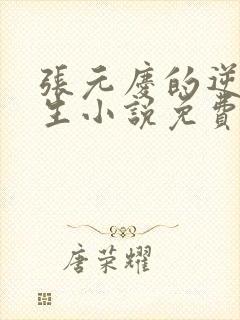 張元慶的逆
生小說免費
唐荣耀